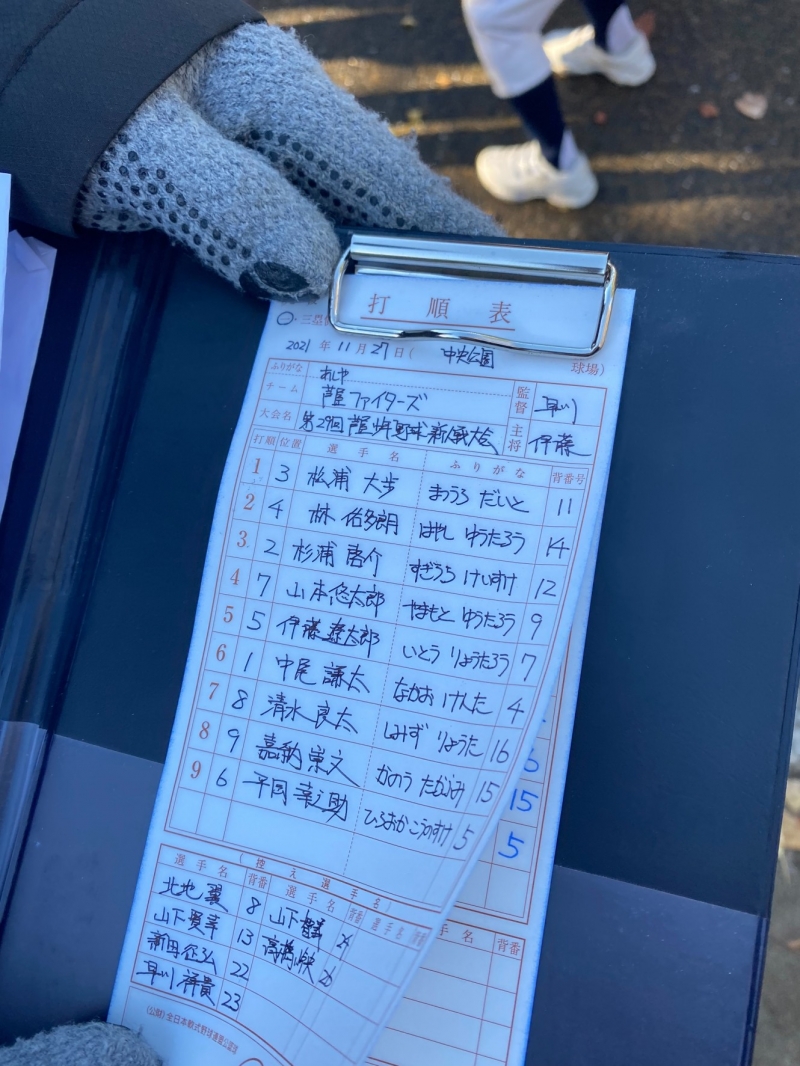 打順表
三塁
2021年11月27日(中央公園球場)
ふりがな あしや
チーム 芦屋ファイターズ 監督 早川
大会名 第29回芦屋少年野球新人戦大会 主将 伊藤
打順 位置 選手名 ふりがな 背番号
1 3 松浦 大歩 まつうら だいと 11
2 4 林 佑多朗 はやし ゆうたろう 14
3 2 杉浦 啓介 すぎうら けいすけ 12
4 7 山本悠太郎 やまもと ゆうたろう 9
5 5 伊藤遼太郎 いとう りょうたろう 7
6 1 中尾 謙太 なかお けんた 4
7 8 清水 良太 しみず りょうた 16
8 9 嘉納 崇文 かのう たかふみ 15 15
9 6 平岡 幸之助 ひらおか こうのすけ 5 5
(控え選手名)
選手名 背番 選手名 背番 選手名 背番 手名 背番
北地 翼 8 山下
山下 13 高橋 快 26
新田 征弘 22
早川 祥貴 23
(公財)全日本軟式野球連盟公認